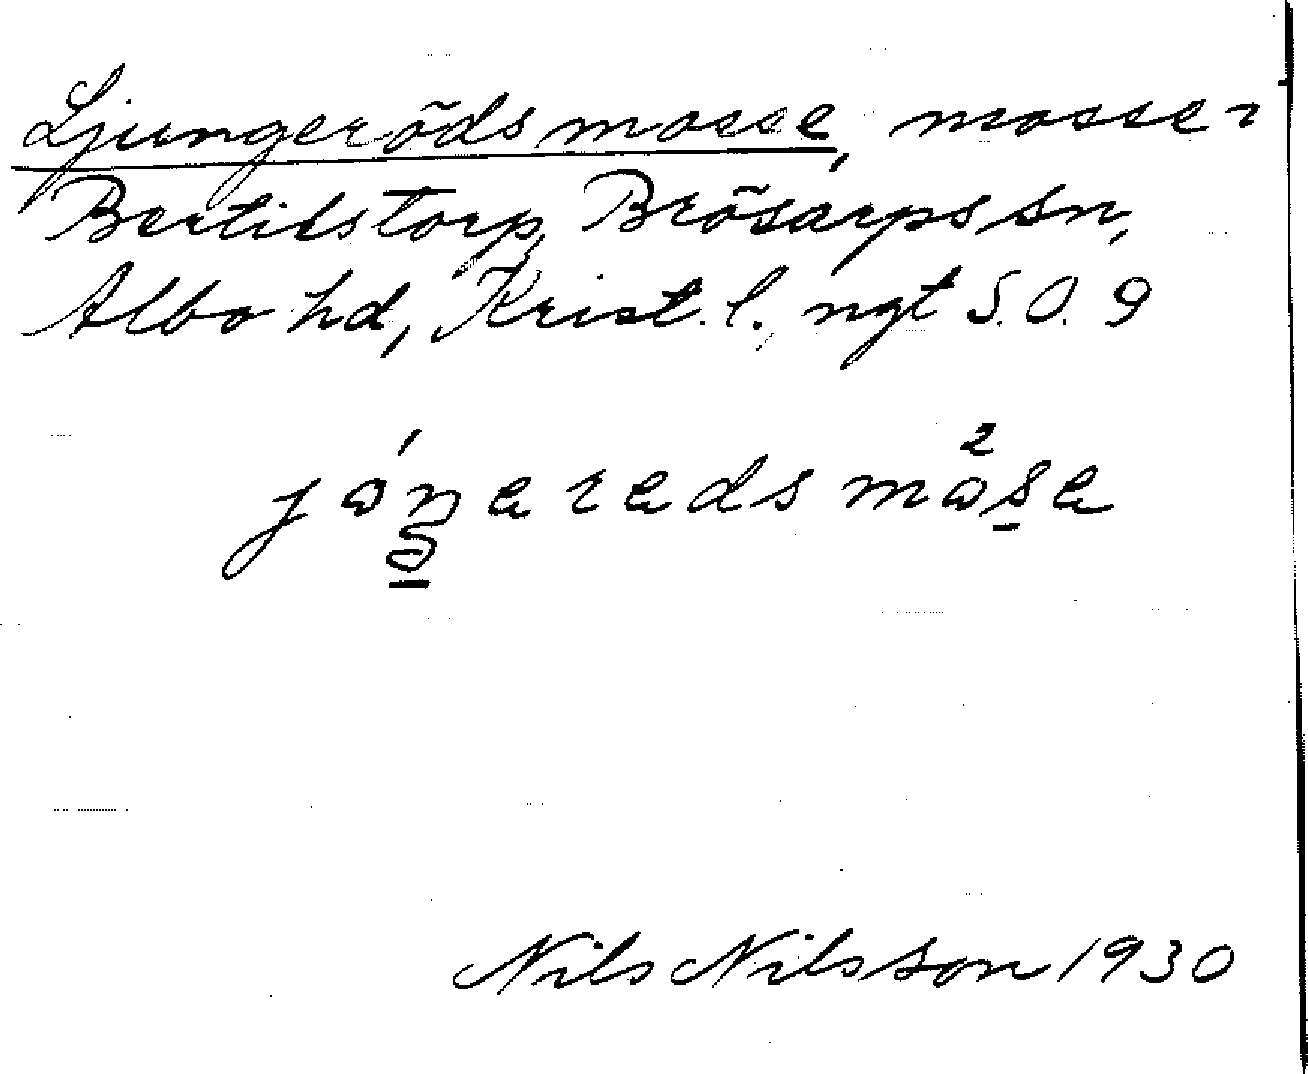 Ljungerödsmosse, mosse i
Bertilstorp, Brösarps sn,
Albo hd, Krist. l. ngt S.O. 9
Nils Nilsson 1930